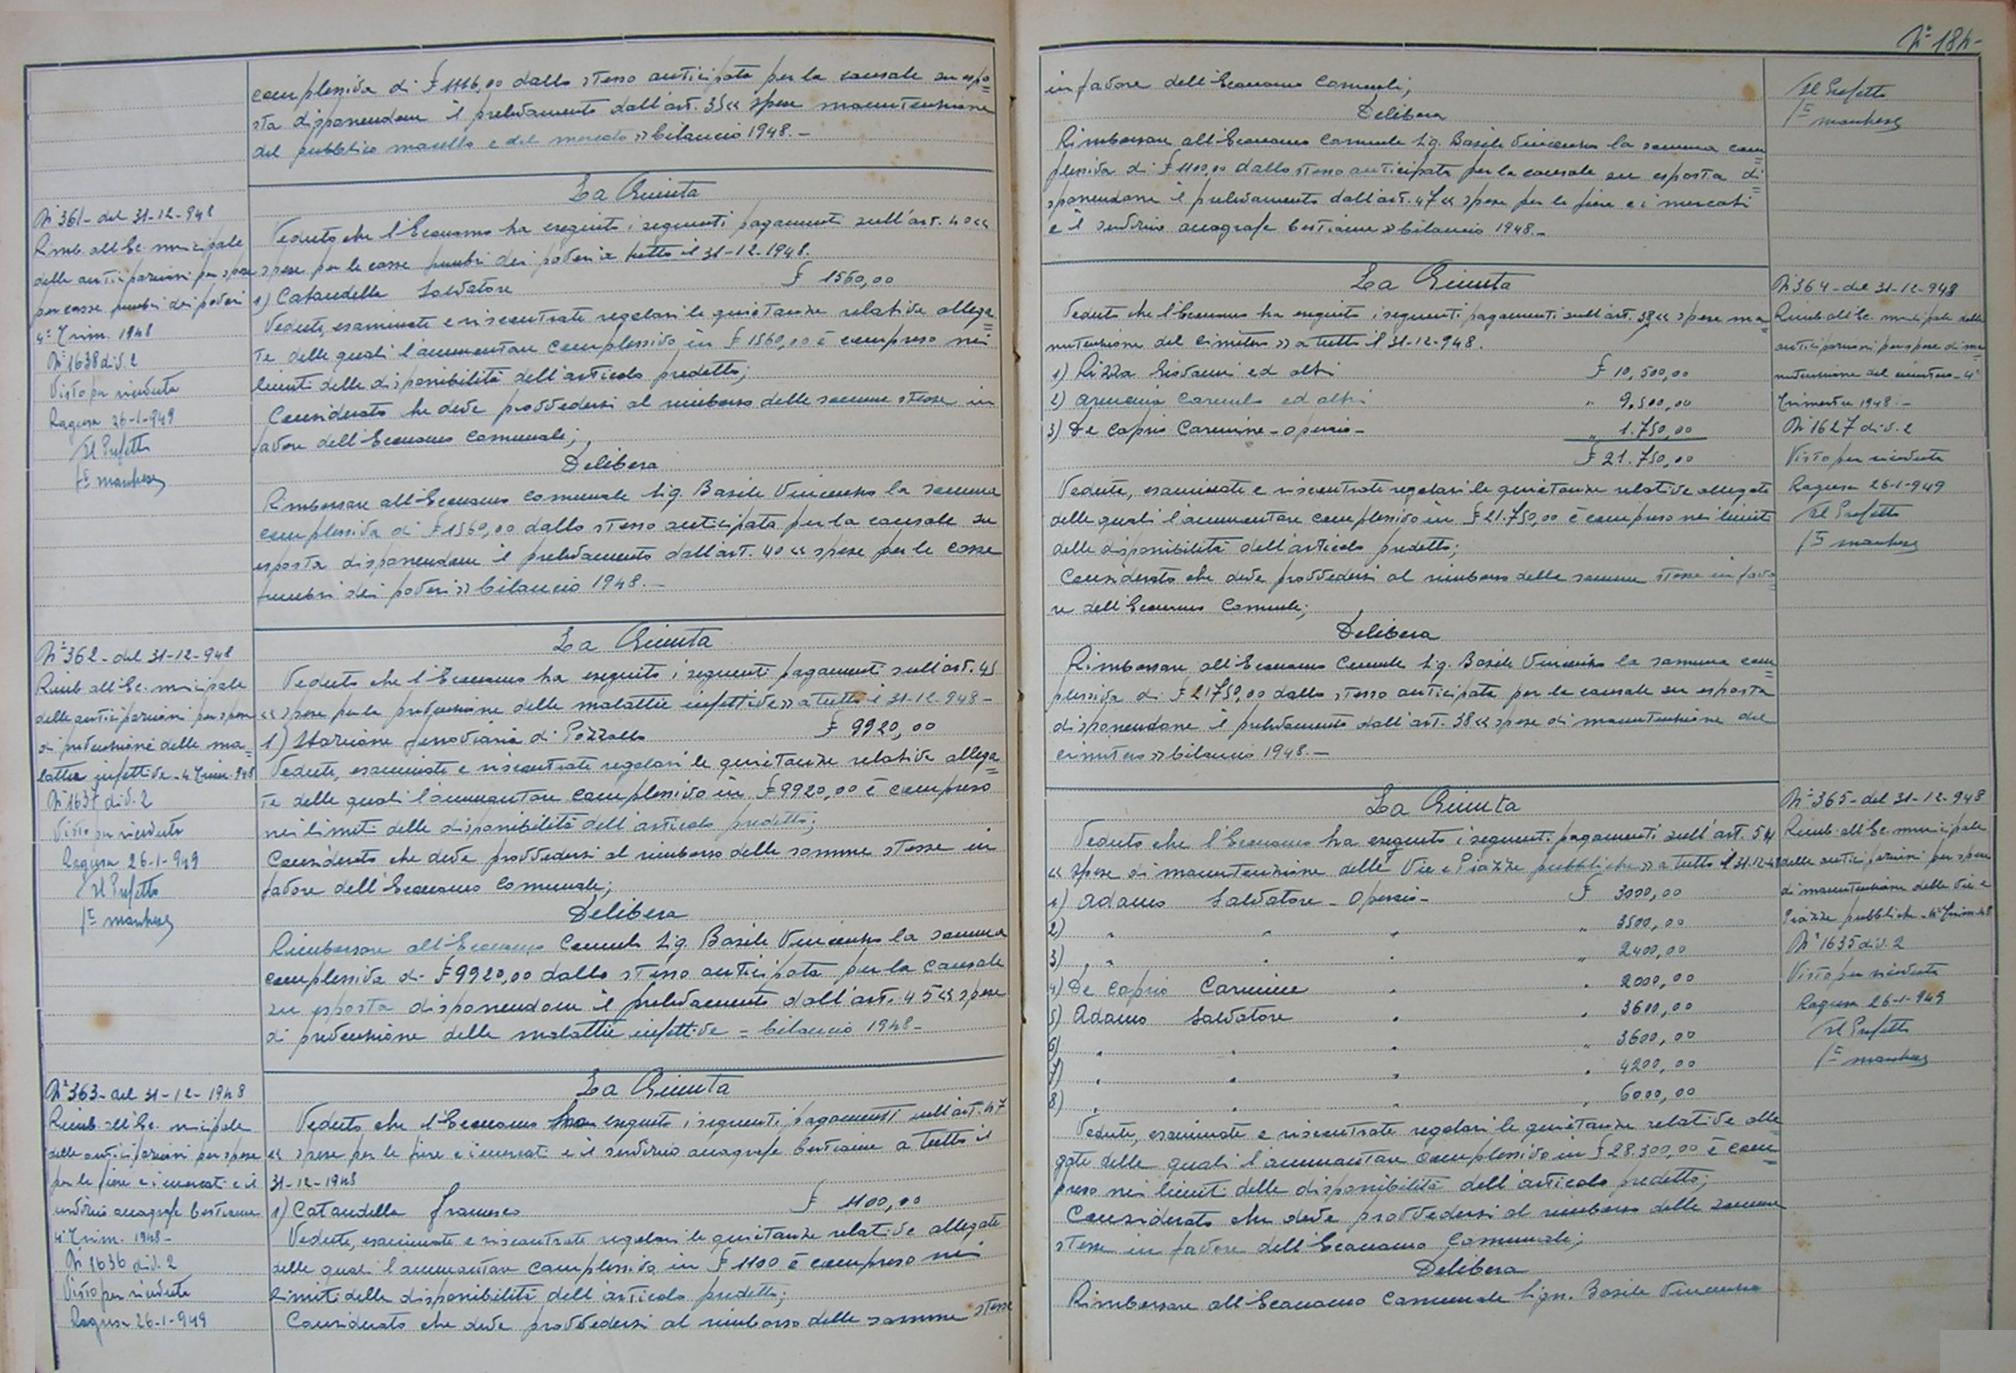 complessiva di £ 1116,00 dallo stesso anticipata per la causale su espo=
sta disponendone il prelevamento dall'art. 35 << spese manutenzione
del pubblico macello e del mercato >> bilancio 1948.-
N° 361- del 31-12-948
Rimb. all'Ec. municipale
delle anticipazioni per spese
per casse funebri dei poveri
4° Trim. 1948
N° 1638 div. 2
Visto per ricevuta
Ragusa 26-1-949
Il Prefetto
Fto
La Giunta
Veduto che l'Economo ha eseguito i seguenti pagamenti sull'art. 40 <<
spese per le casse funebri dei poveri a tutto il 31-12-1948.
1) Cataudella Salvatore £ 1560,00
Vedute, esaminate e riscontrate regolari le quietanze relative allega=
te delle quali l'ammontare complessivo in £ 1560,00 è compreso nei
limiti delle disponibilità dell'articolo predetto;
Considerato che deve provvedersi al rimborso delle somme stesse in
favore dell'Economo Comunale;
Delibera
Rimborsare all'Economo Comunale Sig. Basile Vincenzo la somma
complessiva di £ 1560,00 dallo stesso anticipata per la causale su
esposta disponendone il prelevamento dall'art. 40 << spese per le casse
funebri dei poveri >> bilancio 1948.-
N° 362- del 31-12-948
Rimb. all'Ec. municipale
delle anticipazioni per spese
di prevenzione delle ma=
lattie infettive - 4 Trim. 948
N° 1637 div. 2
Visto per ricevuta
Ragusa 26-1-949
Il Prefetto
Fto
La Giunta
Veduto che l'Economo ha eseguito i seguenti pagamenti sull'art. 45
<< spese per la prevenzione delle malattie infettive >> a tutto il 31-12-948-
1) Stazione ferroviaria di Pozzallo £ 9920,00
Vedute, esaminate e riscontrate regolari le quietanze relative allega=
te delle quali l'ammontare complessivo in £ 9920,00 è compreso
nei limiti delle disponibilità dell'articolo predetto;
Considerato che deve provvedersi al rimborso delle somme stesse in
favore dell'Economo Comunale;
Delibera
Rimborsare all'Economo Comunale Sig. Basile Vincenzo la somma
complessiva di £ 9920,00 dallo stesso anticipata per la causale
su esposta disponendone il prelevamento dall'art. 45 << spese
di prevenzione delle malattie infettive = bilancio 1948-
N° 363- del 31-12-1948
Rimb. all'Ec. municipale
delle anticipazioni per spese
per le fiere e i mercati e il
servizio anagrafe bestiame
4° Trim. 1948-
N° 1636 div. 2
Visto per ricevuta
Ragusa 26-1-949
La Giunta
Veduto che l'Economo ha eseguito i seguenti pagamenti sull'art. 47
<< spese per le fiere e i mercati e il servizio anagrafe bestiame a tutto il
31-12-1948
1) Cataudella Francesco £ 1100,00
Vedute, esaminate e riscontrate regolari le quietanze relative allegate
delle quali l'ammontare complessivo in £ 1100 è compreso nei
limiti delle disponibilità dell'articolo predetto;
Considerato che deve provvedersi al rimborso delle somme stesse
N° 184-
in favore dell'Economo Comunale;
Delibera
Rimborsare all'Economo Comunale Sig. Basile Vincenzo la somma com=
plessiva di £ 1100,00 dallo stesso anticipata per la causale su esposta di=
sponendone il prelevamento dall'art. 47 << spese per le fiere e i mercati
e il servizio anagrafe bestiame >> bilancio 1948.-
Il Prefetto
Fto
La Giunta
Veduto che l'Economo ha eseguito i seguenti pagamenti sull'art. 38 << spese ma=
nutenzione del cimitero >> a tutto il 31-12-948.
1) Rizza Giovanni ed altri £ 10,500,00
2) Armenia Carmelo ed altri " 9,500,00
3) De Caprio Carmine - operaio - " 1.750,00
£ 21.750,00
Vedute, esaminate e riscontrate regolari le quietanze relative allegate
delle quali l'ammontare complessivo in £ 21.750,00 è compreso nei limiti
delle disponibilità dell'articolo predetto;
Considerato che deve provvedersi al rimborso delle somme stesse in favo=
re dell'Economo Comunale;
Delibera
Rimborsare all'Economo Comunale Sig. Basile Vincenzo la somma com=
plessiva di £ 21750,00 dallo stesso anticipata per la causale su esposta
disponendone il prelevamento dall'art. 38 << spese di manutenzione del
cimitero >> bilancio 1948.-
N° 364- del 31-12-948
Rimb. all'Ec. municipale delle
anticipazioni per spese di ma=
nutenzione del cimitero - 4°
Trimestre 1948.-
N° 1627 div. 2
Visto per ricevuta
Ragusa 26-1-949
Il Prefetto
Fto
La Giunta
Veduto che l'Economo ha eseguito i seguenti pagamenti sull'art. 54
<< spese di manutenzione delle Vie e Piazze pubbliche >> a tutto il 31-12-48
1) Adamo Salvatore - operaio - £ 3000,00
2) " " " " 3500,00
3) " " " " 2400,00
4) De Caprio Carmine " " 2000,00
5) Adamo Salvatore " " 3600,00
6) " " " " 3600,00
7) " " " " 4200,00
8) " " " " 6000,00
Vedute, esaminate e riscontrate regolari le quietanze relative alle=
gate delle quali l'ammontare complessivo in £ 28.300,00 è com=
preso nei limiti delle disponibilità dell'articolo predetto;
Considerato che deve provvedersi al rimborso delle somme
stesse in favore dell'Economo Comunale;
Delibera
Rimborsare all'Economo Comunale Sign. Basile Vincenzo
N° 365- del 31-12-948
Rimb. all'Ec. municipale
delle anticipazioni per spese
di manutenzione delle Vie e
Piazze pubbliche - 4° Trim. 48
N° 1635 div. 2
Visto per ricevuta
Ragusa 26-1-949
Il Prefetto
Fto